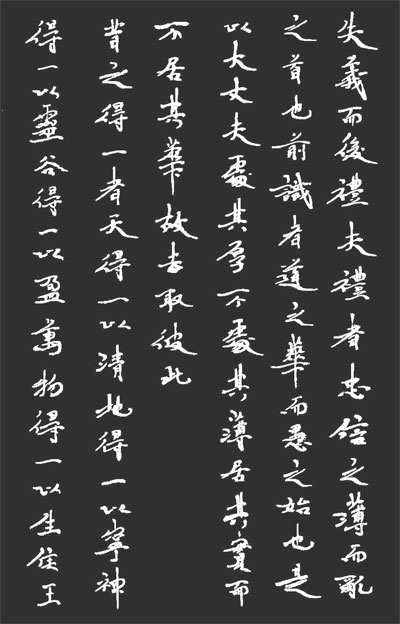 失義而後禮夫禮者忠信之薄而亂
之首也前識者道之華而愚之始也是
以大丈夫處其厚不處其薄居其實而
不居其華故去取彼此
昔之得一者天得一以清地得一以寧神
得一以靈谷得一以盈萬物得一以生侯王